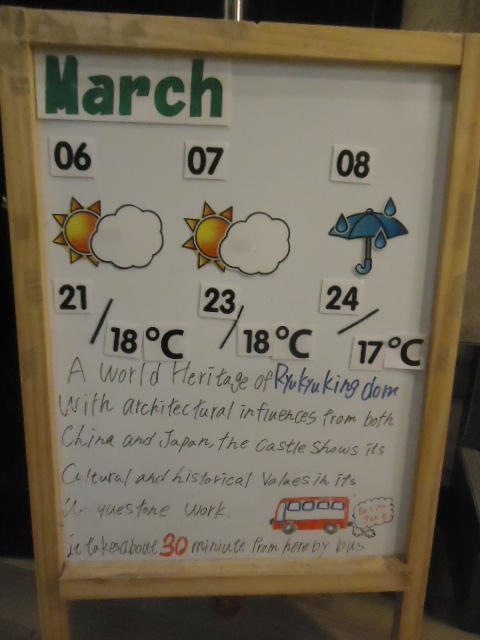 March
06 07 08
21/18°C 23/18°C 24/17°C
A World Heritage of Ryukyu King dom
With architectural influences from both
China and Japan, the Castle shows its
Cultural and historical Values in its
questone work.
it takes about 30 miniute from here by bus